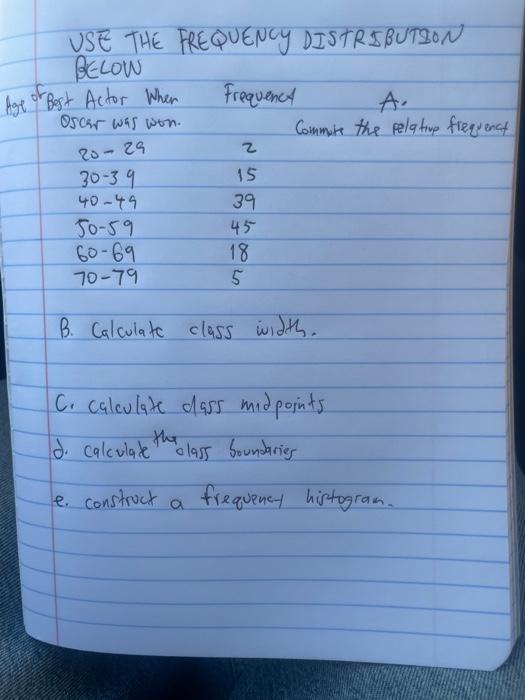 USE THE FREQUENCY DISTRIBUTION
BELOW
Age of Best Actor When Frequency A.
Oscar was won. Commute the relative frequency
20-29 2
30-39 15
40-49 39
50-59 45
60-69 18
70-79 5
B. Calculate class width.
C. calculate class midpoints
d. calculate the class boundaries
e. construct a frequency histogram.